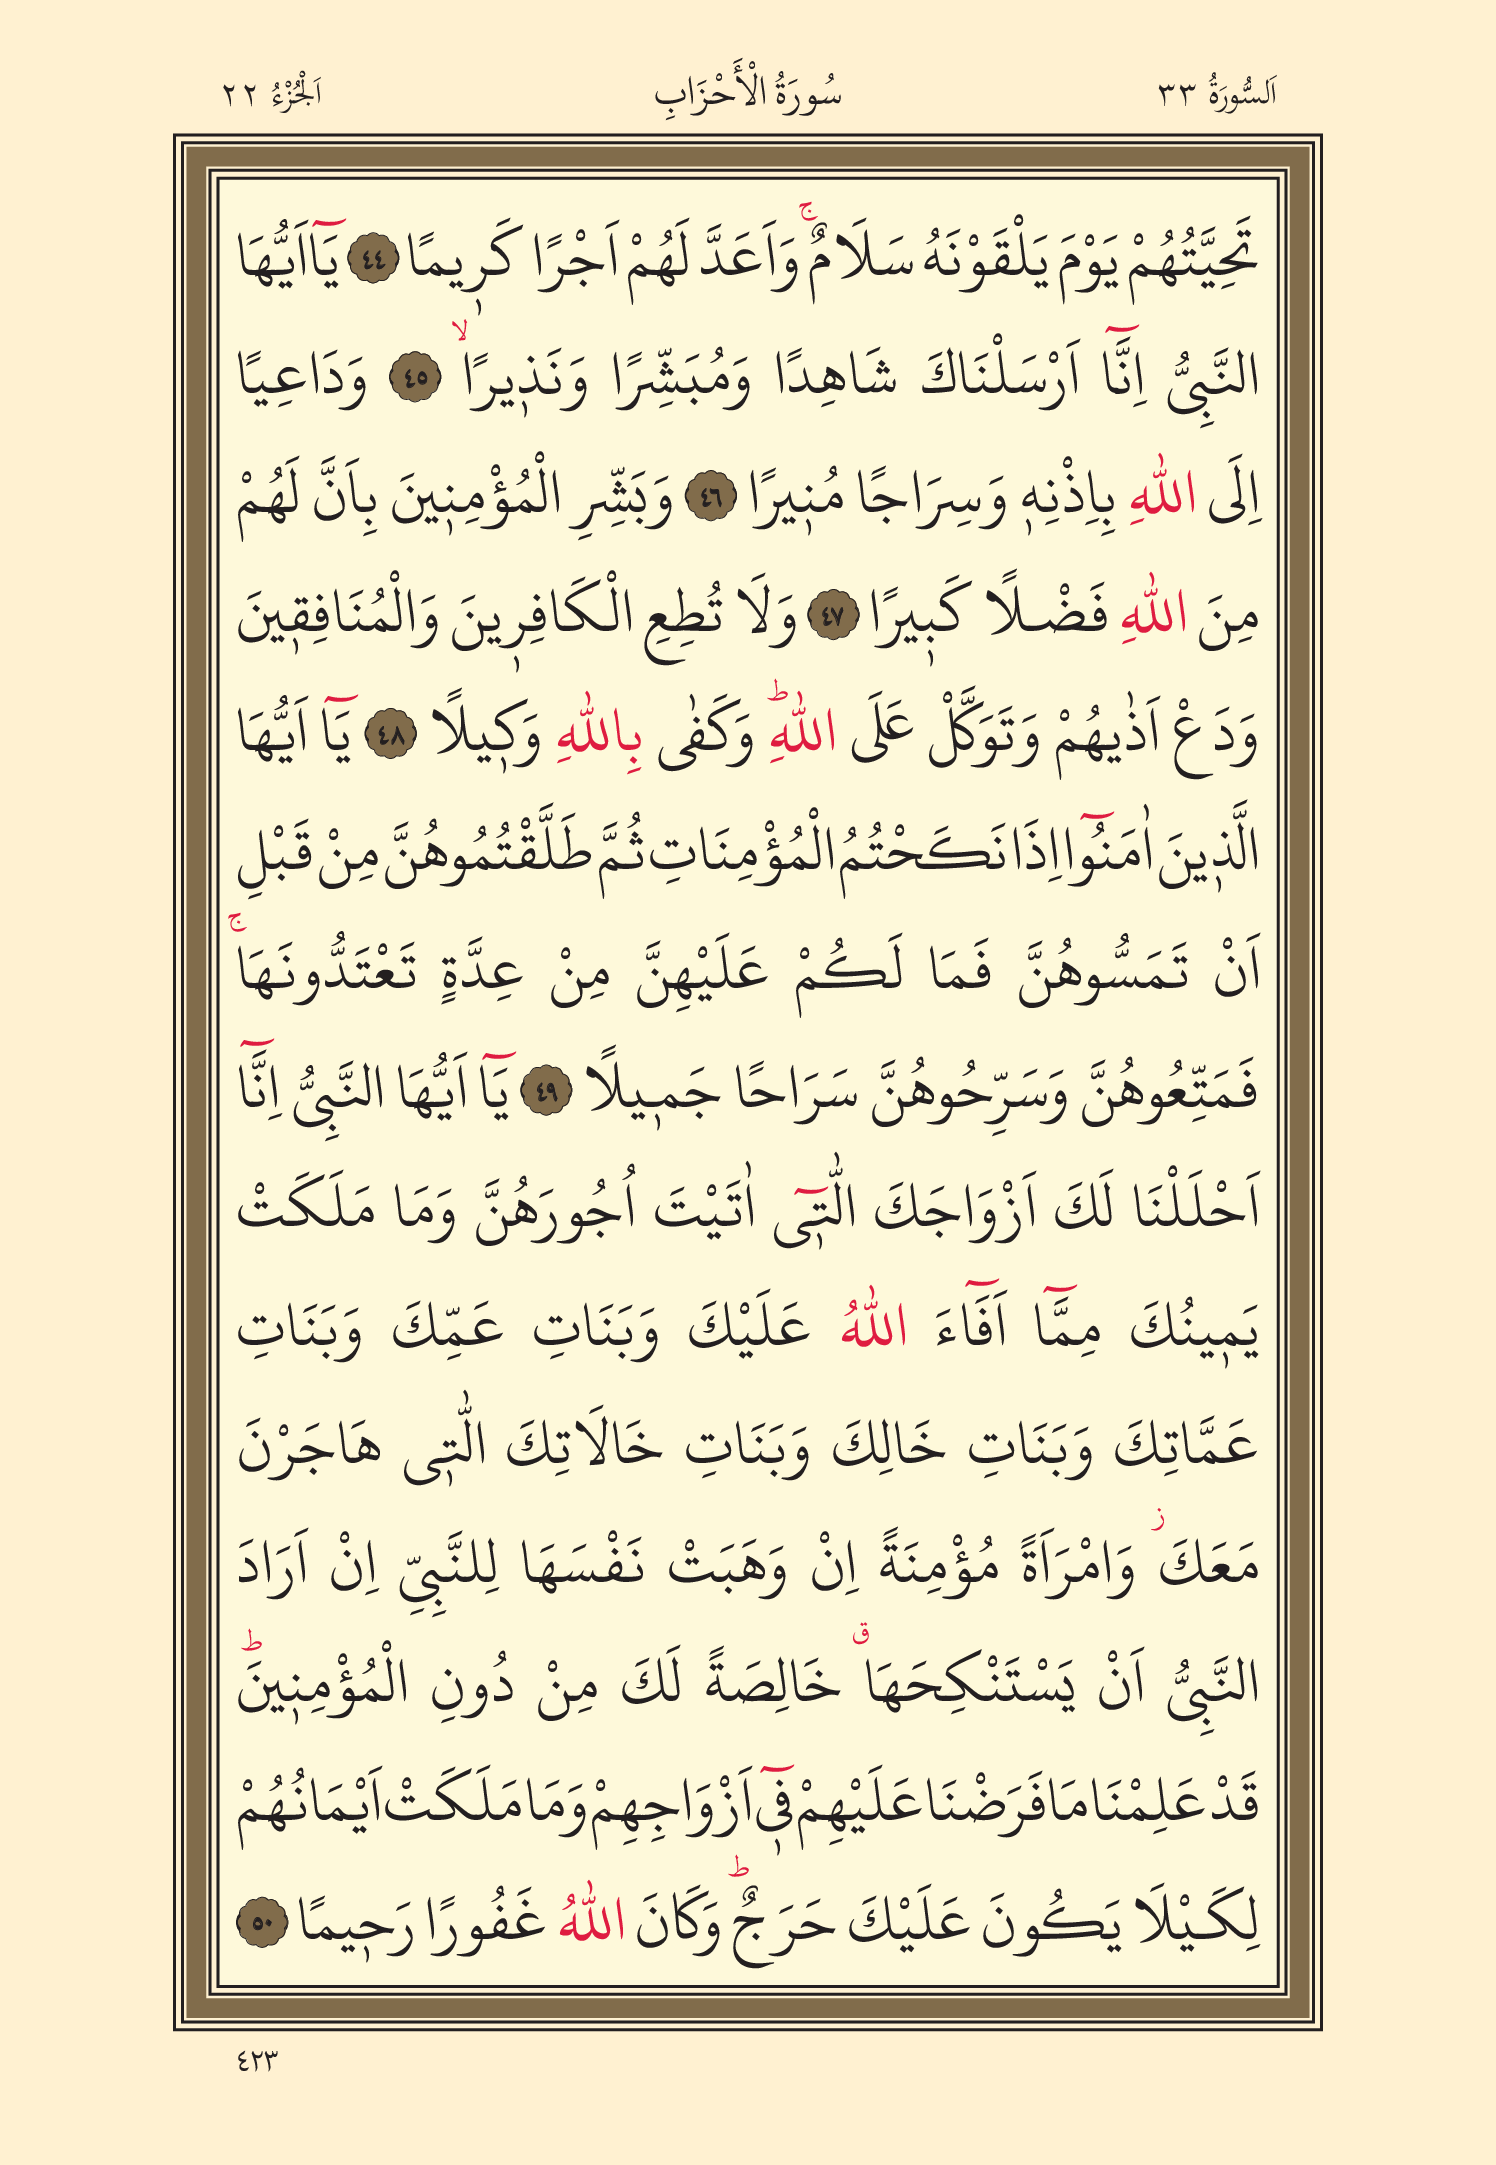 اَلسُّورَةُ ٣٣ سُورَةُ الْأَحْزَابِ اَلْجُزْءُ ٢٢
تَحِيَّتُهُمْ يَوْمَ يَلْقَوْنَهُ سَلَامٌۚ وَاَعَدَّ لَهُمْ اَجْرًا كَر۪يمًا ﴿٤٤﴾ يَٓا اَيُّهَا
النَّبِىُّ اِنَّٓا اَرْسَلْنَاكَ شَاهِدًا وَمُبَشِّرًا وَنَذ۪يرًاۙ ﴿٤٥﴾ وَدَاعِيًا
اِلَى اللّٰهِ بِاِذْنِه۪ وَسِرَاجًا مُن۪يرًا ﴿٤٦﴾ وَبَشِّرِ الْمُؤْمِن۪ينَ بِاَنَّ لَهُمْ
مِنَ اللّٰهِ فَضْلًا كَب۪يرًا ﴿٤٧﴾ وَلَا تُطِعِ الْكَافِر۪ينَ وَالْمُنَافِق۪ينَ
وَدَعْ اَذٰيهُمْ وَتَوَكَّلْ عَلَى اللّٰهِۜ وَكَفٰى بِاللّٰهِ وَك۪يلًا ﴿٤٨﴾ يَٓا اَيُّهَا
الَّذ۪ينَ اٰمَنُٓوا اِذَا نَكَحْتُمُ الْمُؤْمِنَاتِ ثُمَّ طَلَّقْتُمُوهُنَّ مِنْ قَبْلِ
اَنْ تَمَسُّوهُنَّ فَمَا لَكُمْ عَلَيْهِنَّ مِنْ عِدَّةٍ تَعْتَدُّونَهَاۚ
فَمَتِّعُوهُنَّ وَسَرِّحُوهُنَّ سَرَاحًا جَم۪يلًا ﴿٤٩﴾ يَٓا اَيُّهَا النَّبِىُّ اِنَّٓا
اَحْلَلْنَا لَكَ اَزْوَاجَكَ الّٰت۪ٓى اٰتَيْتَ اُجُورَهُنَّ وَمَا مَلَكَتْ
يَم۪ينُكَ مِمَّٓا اَفَٓاءَ اللّٰهُ عَلَيْكَ وَبَنَاتِ عَمِّكَ وَبَنَاتِ
عَمَّاتِكَ وَبَنَاتِ خَالِكَ وَبَنَاتِ خَالَاتِكَ الّٰت۪ى هَاجَرْنَ
مَعَكَۘ وَامْرَاَةً مُؤْمِنَةً اِنْ وَهَبَتْ نَفْسَهَا لِلنَّبِىِّ اِنْ اَرَادَ
النَّبِىُّ اَنْ يَسْتَنْكِحَهَاۗ خَالِصَةً لَكَ مِنْ دُونِ الْمُؤْمِن۪ينَۜ
قَدْ عَلِمْنَا مَا فَرَضْنَا عَلَيْهِمْ ف۪ٓى اَزْوَاجِهِمْ وَمَا مَلَكَتْ اَيْمَانُهُمْ
لِكَيْلَا يَكُونَ عَلَيْكَ حَرَجٌۜ وَكَانَ اللّٰهُ غَفُورًا رَح۪يمًا ﴿٥٠﴾
٤٢٣